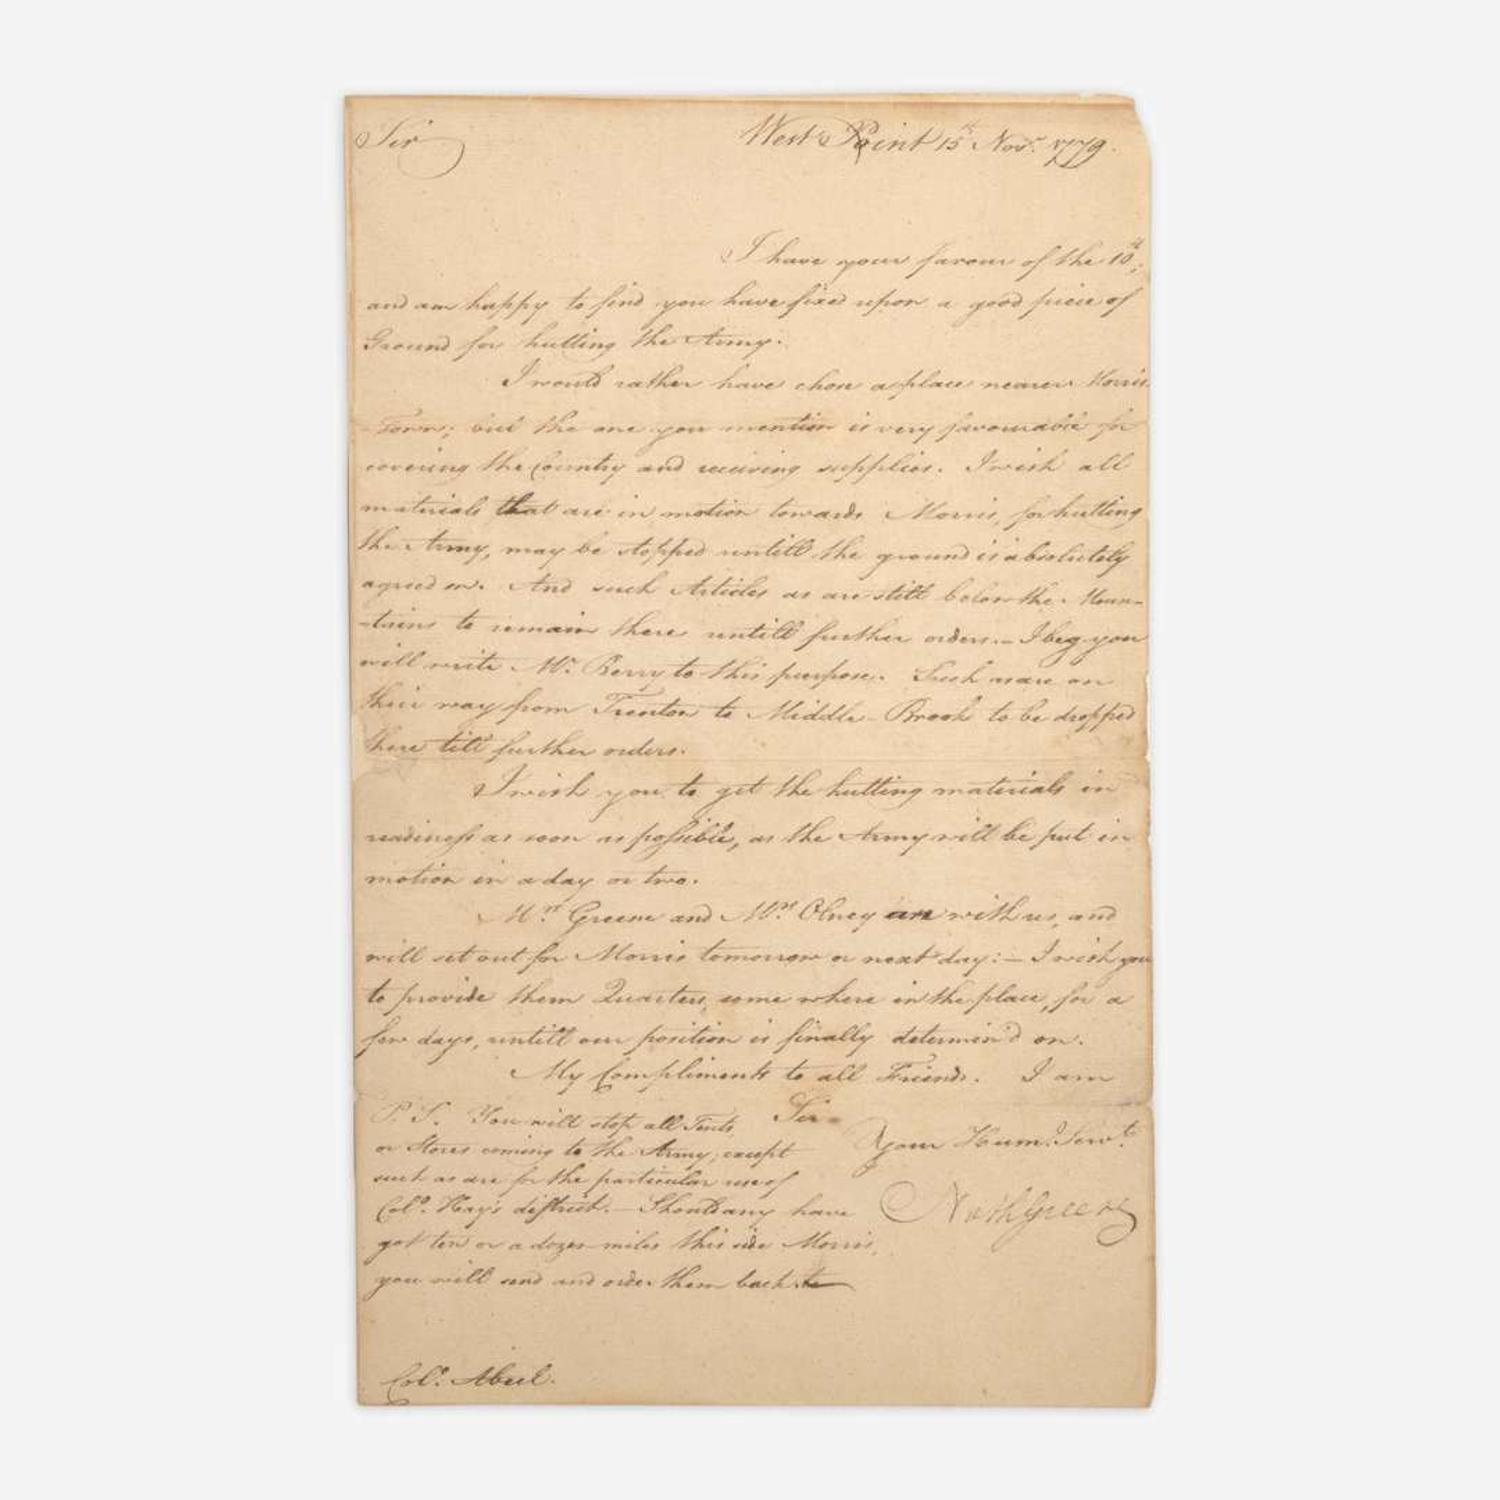 Sir
West Point 15th Novr. 1779.
I have your favour of the 10th;
and am happy to find you have fixed upon a good piece of
Ground for hutting the Army.
I would rather have chose a place nearer Morris
-Town; but the one you mention is very favourable for
covering the Country and receiving supplies. I wish all
materials that are in motion towards Morris, for hutting
the Army, may be stopped untill the ground is absolutely
agreed on. And such Articles as are still below the Moun-
-tains to remain there untill further orders.- I beg you
will write Mr. Berry to this purpose. Such as are on
their way from Trenton to Middle-Brook to be dropped
there till further orders.
I wish you to get the hutting materials in
readiness as soon as possible, as the Army will be put in
motion in a day or two.
Mrs. Greene and Mrs. Olney are with us, and
will set out for Morris tomorrow or next day:- I wish you
to provide them Quarters, some where in the place, for a
few days, untill our position is finally determin'd on.
My Compliments to all Friends. I am
Sir
Your Humb. Servt.
Nath Greene
P.S. You will stop all Tents
or Stores coming to the Army; except
such as are for the particular use of
Colo. Hay's district.- Should any have
got ten or a dozen miles this side Morris,
you will send and order them back to
Colo. Abeel.